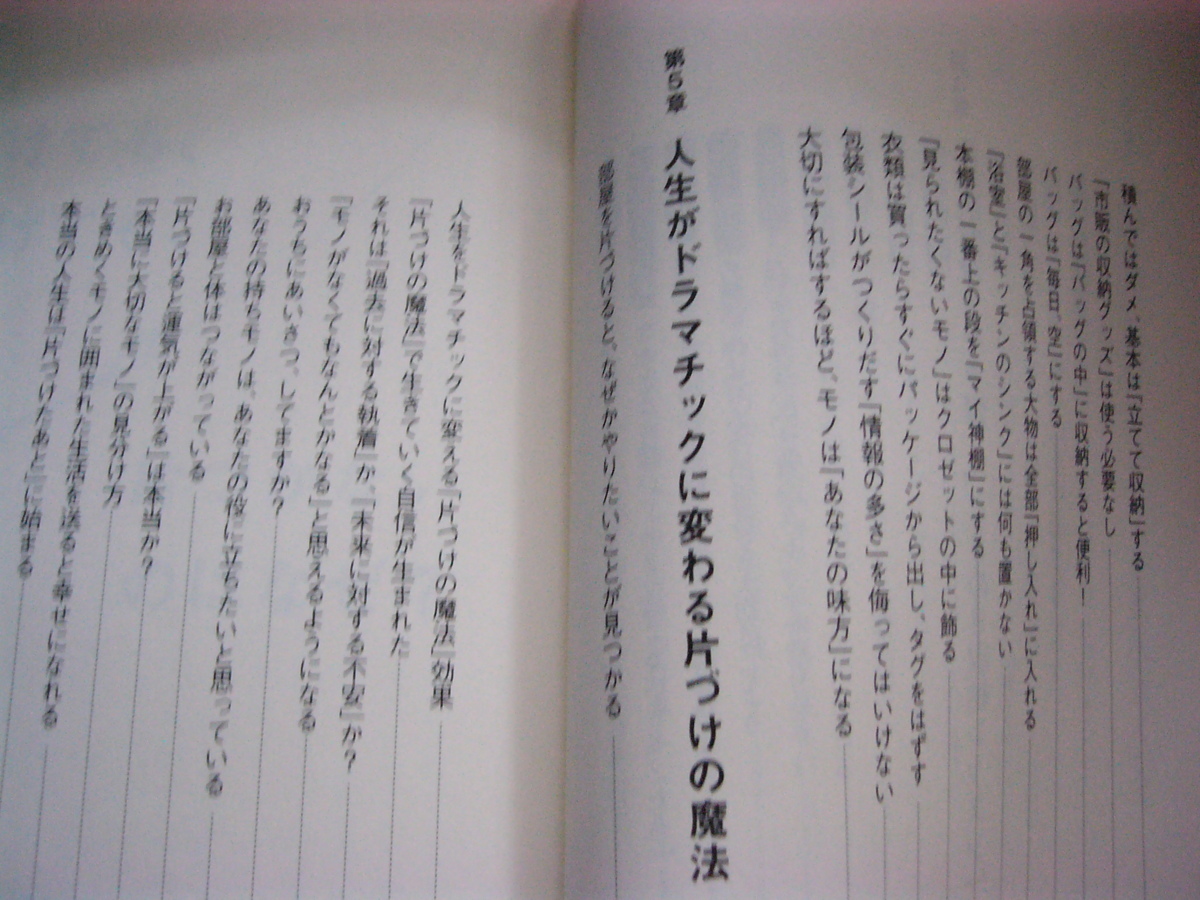 積んではダメ、基本は「立てて収納」する
「市販の収納グッズ」は使う必要なし
バッグは「バッグの中」に収納すると便利！
バッグは「毎日、空」にする
部屋の一角を占領する大物は全部「押し入れ」に入れる
「浴室」と「キッチンのシンク」には何も置かない
本棚の一番上の段を「マイ神棚」にする
「見られたくないモノ」はクロゼットの中に飾る
衣類は買ったらすぐにパッケージから出し、タグをはずす
包装シールがつくりだす「情報の多さ」を侮ってはいけない
大切にすればするほど、モノは「あなたの味方」になる
第5章 人生がドラマチックに変わる片づけの魔法
部屋を片づけると、なぜかやりたいことが見つかる
人生をドラマチックに変える「片づけの魔法」効果
「片づけの魔法」で生きていく自信が生まれた
それは「過去に対する執着」か、「未来に対する不安」か？
「モノがなくてもなんとかなる」と思えるようになる
おうちにあいさつ、してますか？
あなたの持ちモノは、あなたの役に立ちたいと思っている
お部屋と体はつながっている
「片づけると運気が上がる」は本当か？
「本当に大切なモノ」の見分け方
ときめくモノに囲まれた生活を送ると幸せになれる
本当の人生は「片づけたあと」に始まる